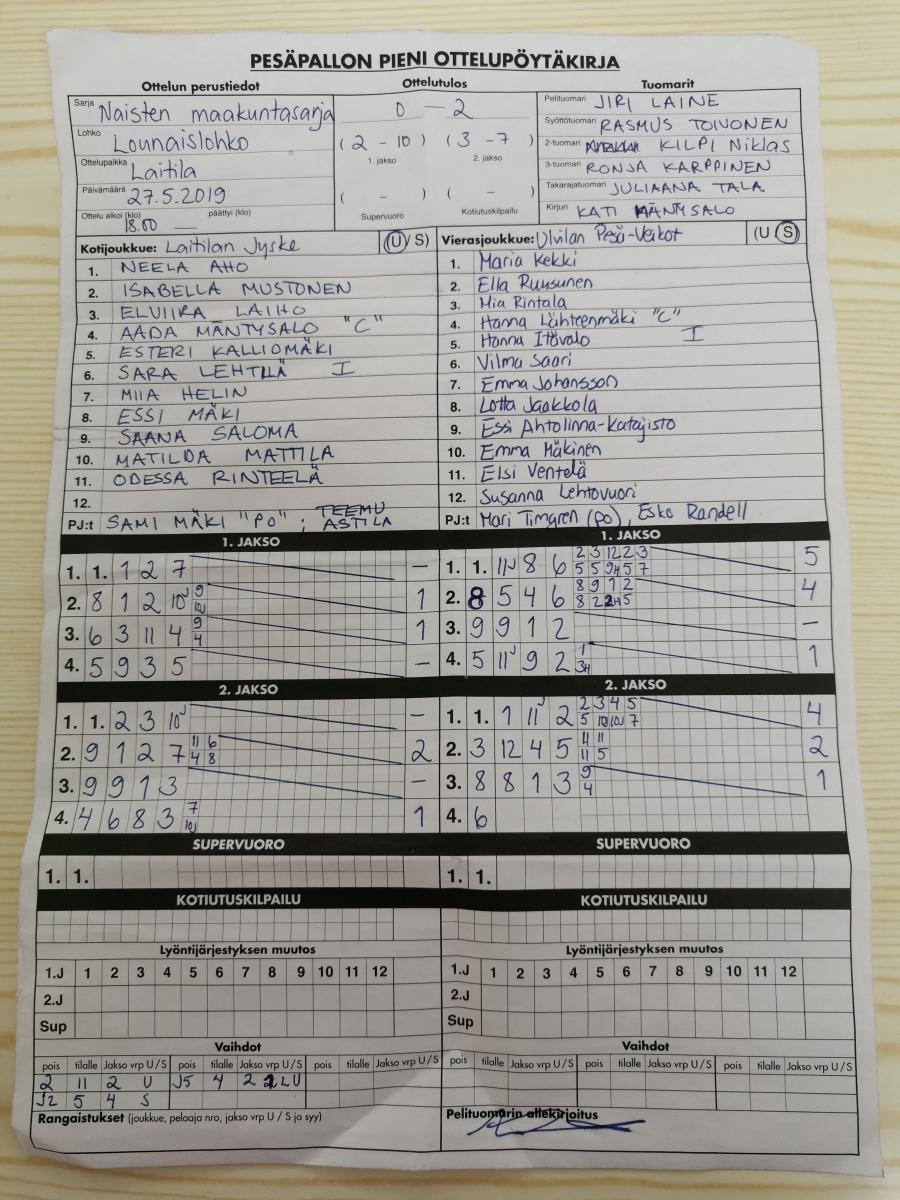 PESÄPALLON PIENI OTTELUPÖYTÄKIRJA
Ottelun perustiedot Ottelutulos Tuomarit
Sarja Naisten maakuntasarja
0 – 2
Pelituomari JIRI LAINE
Lohko Lounaislohko
(2 - 10) (3 - 7)
1. jakso 2. jakso
Syöttötuomari RASMUS TOIVONEN
2-tuomari KILPI Niklas
Ottelupaikka Laitila
3-tuomari RONJA KARPPINEN
Päivämäärä 27.5.2019
( - ) ( - )
Supervuoro Kotiutuskilpailu
Takarajatuomari JULIAANA TALA
Ottelu alkoi (klo) 18.00 päättyi (klo) —
Kirjuri KATI MÄNTYSALO
Kotijoukkue: Laitilan Jyske (U/S)
Vierasjoukkue: Ulvilan Pesä-Veikot (U/S)
1. NEELA AHO
2. ISABELLA MUSTONEN
3. ELVIIRA LAIHO
4. AADA MÄNTYSALO "C"
5. ESTERI KALLIOMÄKI
6. SARA LEHTILÄ I
7. MIIA HELIN
8. ESSI MÄKI
9. SAANA SALOMA
10. MATILDA MATTILA
11. ODESSA RINTEELÄ
12.
PJ:t SAMI MÄKI "PO" ; TEEMU ASTILA
1. Maria Kekki
2. Ella Ruusunen
3. Mia Rintala
4. Hanna Lähteenmäki "C"
5. Hanna Itävalo I
6. Vilma Saari
7. Emma Johansson
8. Lotta Jaakkola
9. Essi Ahtolinna-Katajisto
10. Emma Mäkinen
11. Elsi Ventelä
12. Susanna Lehtovuori
PJ:t Mari Timgren (po), Esko Randell
1. JAKSO
1. 1. 1 2 7 –
2. 8 1 2 10J 9 10J 1
3. 6 3 11 4 9 4 1
4. 5 9 3 5 –
1. JAKSO
1. 1. 11J 8 6 2 3 12 2 3 5
5 5 9H 5 7
2. 8 5 4 6 8 9 1 2 4
8 2 2H 5
3. 9 9 1 2 –
4. 5 11J 9 2 1 3H 1
2. JAKSO
1. 1. 2 3 10J –
2. 9 1 2 7 11 6 2
4 8
3. 9 9 1 3 –
4. 4 6 8 3 7 10J 1
2. JAKSO
1. 1. 1 11J 2 2 3 4 5 4
5 10J 10J 7
2. 3 12 4 5 11 2
11 5
3. 8 8 1 3 9 4 1
4. 6
SUPERVUORO SUPERVUORO
1. 1. 1. 1.
KOTIUTUSKILPAILU KOTIUTUSKILPAILU
Lyöntijärjestyksen muutos Lyöntijärjestyksen muutos
1.J 1 2 3 4 5 6 7 8 9 10 11 12
2.J
Sup
1.J 1 2 3 4 5 6 7 8 9 10 11 12
2.J
Sup
Vaihdot Vaihdot
pois tilalle Jakso vrp U/S pois tilalle Jakso vrp U/S pois tilalle Jakso vrp U/S
2 11 2 U J5 4 2 2LU
J2 5 4 S
pois tilalle Jakso vrp U/S pois tilalle Jakso vrp U/S pois tilalle Jakso vrp U/S
Rangaistukset (joukkue, pelaaja nro, jakso vrp U/S ja syy)
Pelituomarin allekirjoitus